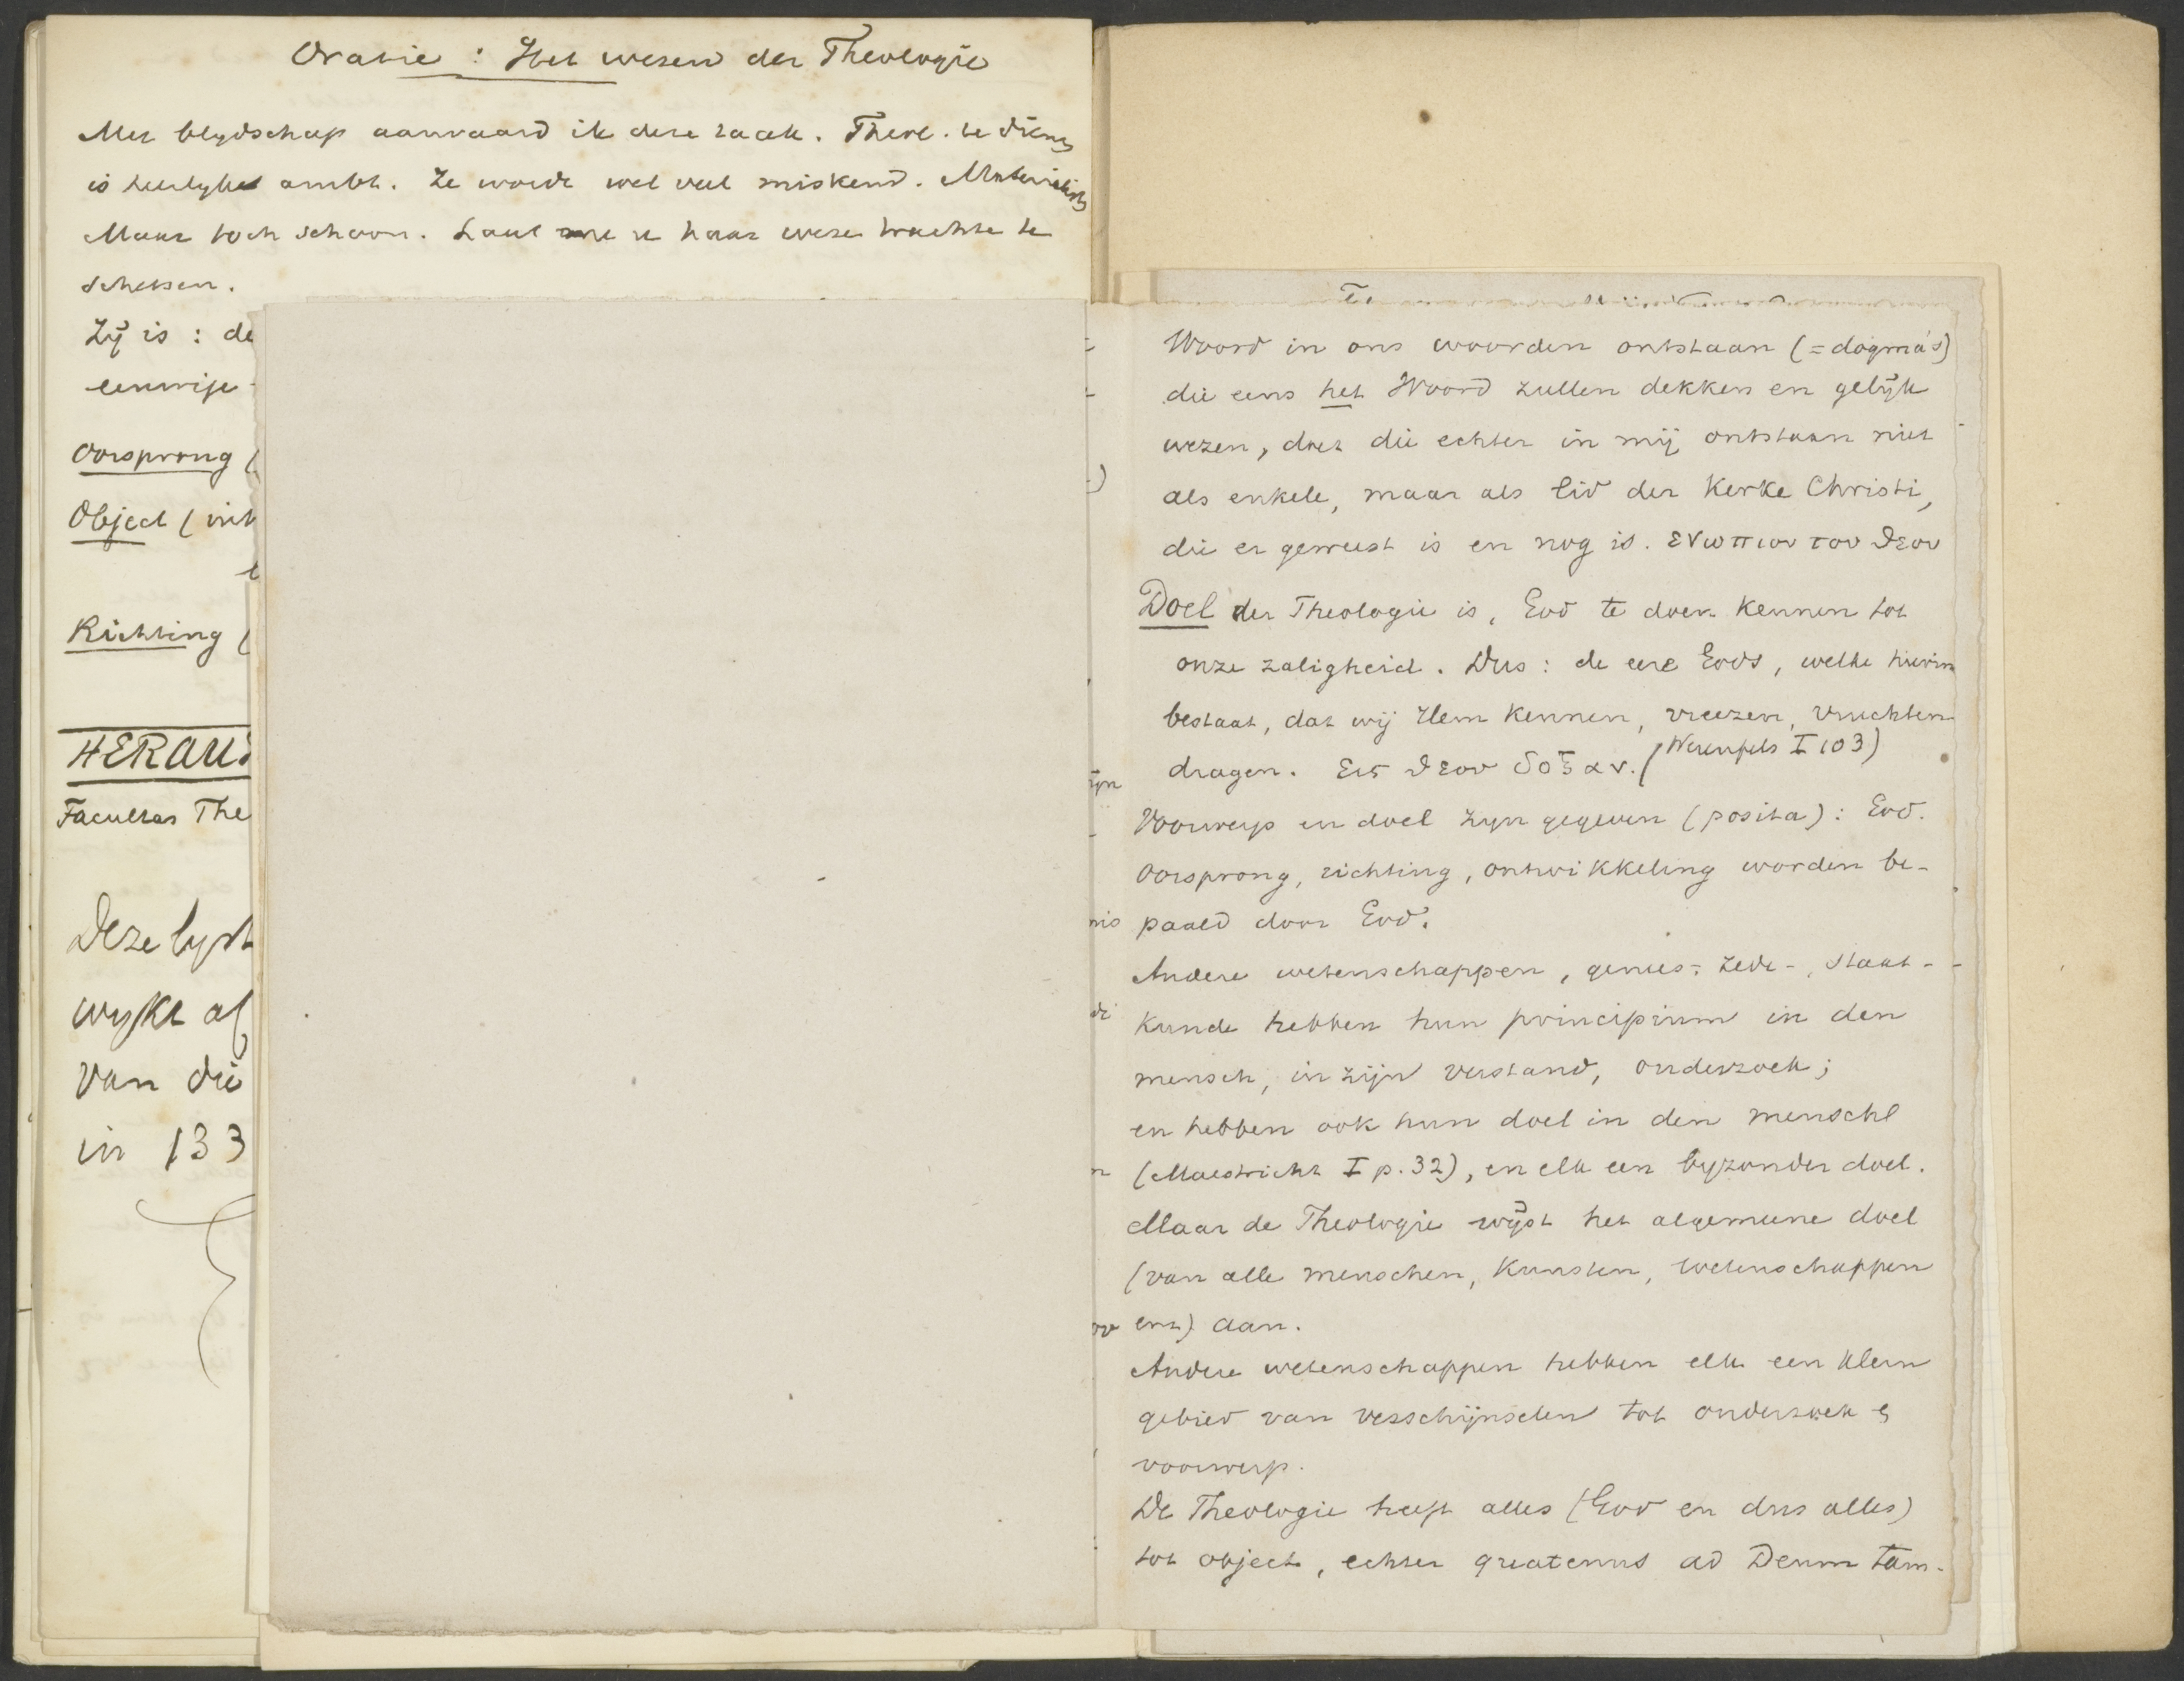 Oratie : Het wezen der Theologie
Met blydschap aanvaard ik deze taak. Theol. te dienen
is heerlyke ambt. Ze wordt wel veel miskend. Materialisten
Maar toch schoon. Laat me u haar wezen trachten te
schetsen.
Zij is : de
eenvige
Oorsprong (
Object (
Richting (
HERAU
Facultas The
Deze lyst
wykt af
van die
in 133
Woord in ons woorden ontstaan (= dogma's)
die eens het Woord zullen dekken en gelijk
wezen, doch die echter in mij ontstaan niet
als enkele, maar als lid der Kerke Christi,
die er geweest is en nog is. ενωπιον του θεου
Doel der Theologie is, God te doen kennen tot
onze zaligheid. Dus: de eere Gods, welke hierin
bestaat, dat wij Hem kennen, vreezen, vruchten
dragen. Εις θεου δοξαν. (Werenfels I 103)
Voorwerp en doel zyn gegeven (posita): God.
Oorsprong, richting, ontwikkeling worden be-
paald door God.
Andere wetenschappen, genees-, zede-, staat-
kunde hebben hun principium in den
mensch, in zijn verstand, onderzoek;
en hebben ook hun doel in den mensch
(Maestricht I p. 32), en elk een byzonder doel.
Maar de Theologie wijst het algemeene doel
(van alle menschen, kunsten, wetenschappen
enz) aan.
Andere wetenschappen hebben elk een klein
gebied van verschijnselen tot onderzoek en
voorwerp.
De Theologie heeft alles (God en dus alles)
tot object, echter quatenus ad Deum tam-